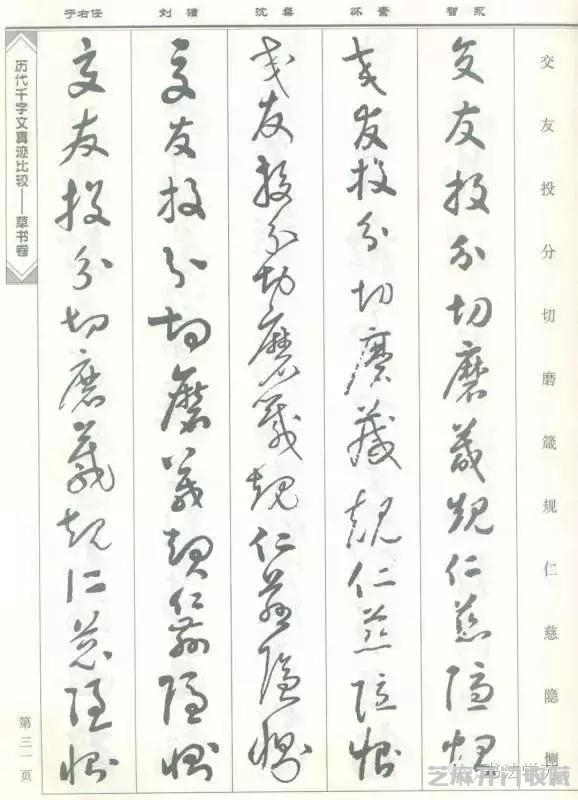 智永
怀素
沈粲
刘墉
于右任
交友投分切磨箴规仁慈隐恻
交友投分切磨箴規仁慈隱惻
交友投分切磨箴規仁慈隱惻
交友投分切磨箴規仁慈隱惻
交友投分切磨箴規仁慈隱惻
交友投分切磨箴規仁慈隱惻
历代千字文真迹比较——草书卷
第三一页
芝麻开门收藏